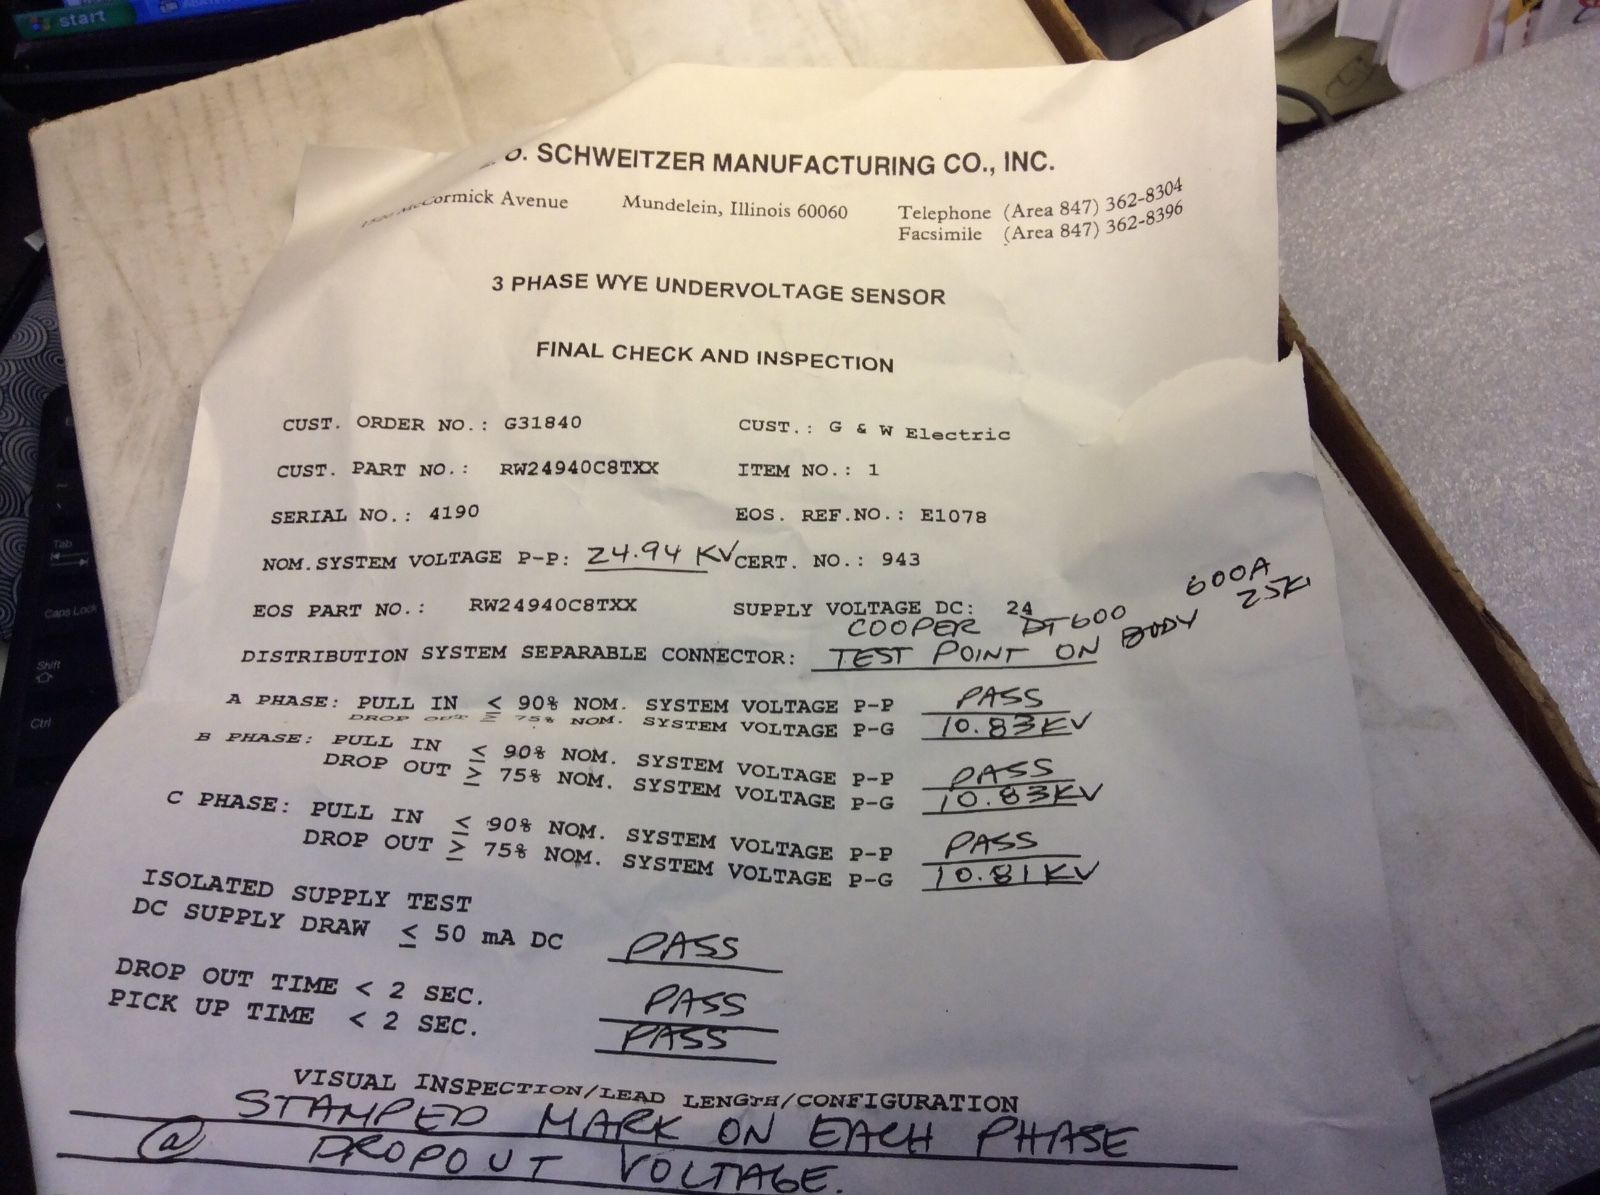 start
O. SCHWEITZER MANUFACTURING CO., INC.
McCormick Avenue Mundelein, Illinois 60060 Telephone (Area 847) 362-8304
Facsimile (Area 847) 362-8396
3 PHASE WYE UNDERVOLTAGE SENSOR
FINAL CHECK AND INSPECTION
CUST. ORDER NO.: G31840 CUST.: G & W Electric
CUST. PART NO.: RW24940C8TXX ITEM NO.: 1
SERIAL NO.: 4190 EOS. REF.NO.: E1078
NOM.SYSTEM VOLTAGE P-P: 24.94 KV CERT. NO.: 943
EOS PART NO.: RW24940C8TXX SUPPLY VOLTAGE DC: 24
COOPER DT600 600A
DISTRIBUTION SYSTEM SEPARABLE CONNECTOR: TEST POINT ON BODY
A PHASE: PULL IN ≤ 90% NOM. SYSTEM VOLTAGE P-P PASS
DROP OUT ≥ 75% NOM. SYSTEM VOLTAGE P-G 10.83KV
B PHASE: PULL IN ≤ 90% NOM. SYSTEM VOLTAGE P-P PASS
DROP OUT ≥ 75% NOM. SYSTEM VOLTAGE P-G 10.83KV
C PHASE: PULL IN ≤ 90% NOM. SYSTEM VOLTAGE P-P PASS
DROP OUT ≥ 75% NOM. SYSTEM VOLTAGE P-G 10.81KV
ISOLATED SUPPLY TEST
DC SUPPLY DRAW ≤ 50 mA DC PASS
DROP OUT TIME < 2 SEC. PASS
PICK UP TIME < 2 SEC. PASS
VISUAL INSPECTION/LEAD LENGTH/CONFIGURATION
STAMPED MARK ON EACH PHASE
@ DROPOUT VOLTAGE.
Tab
Caps Lock
Shift
Ctrl